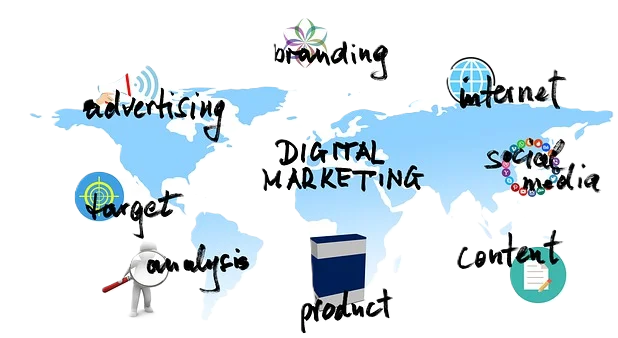 branding
advertising
internet
DIGITAL
MARKETING
social
media
target
analysis
content
product